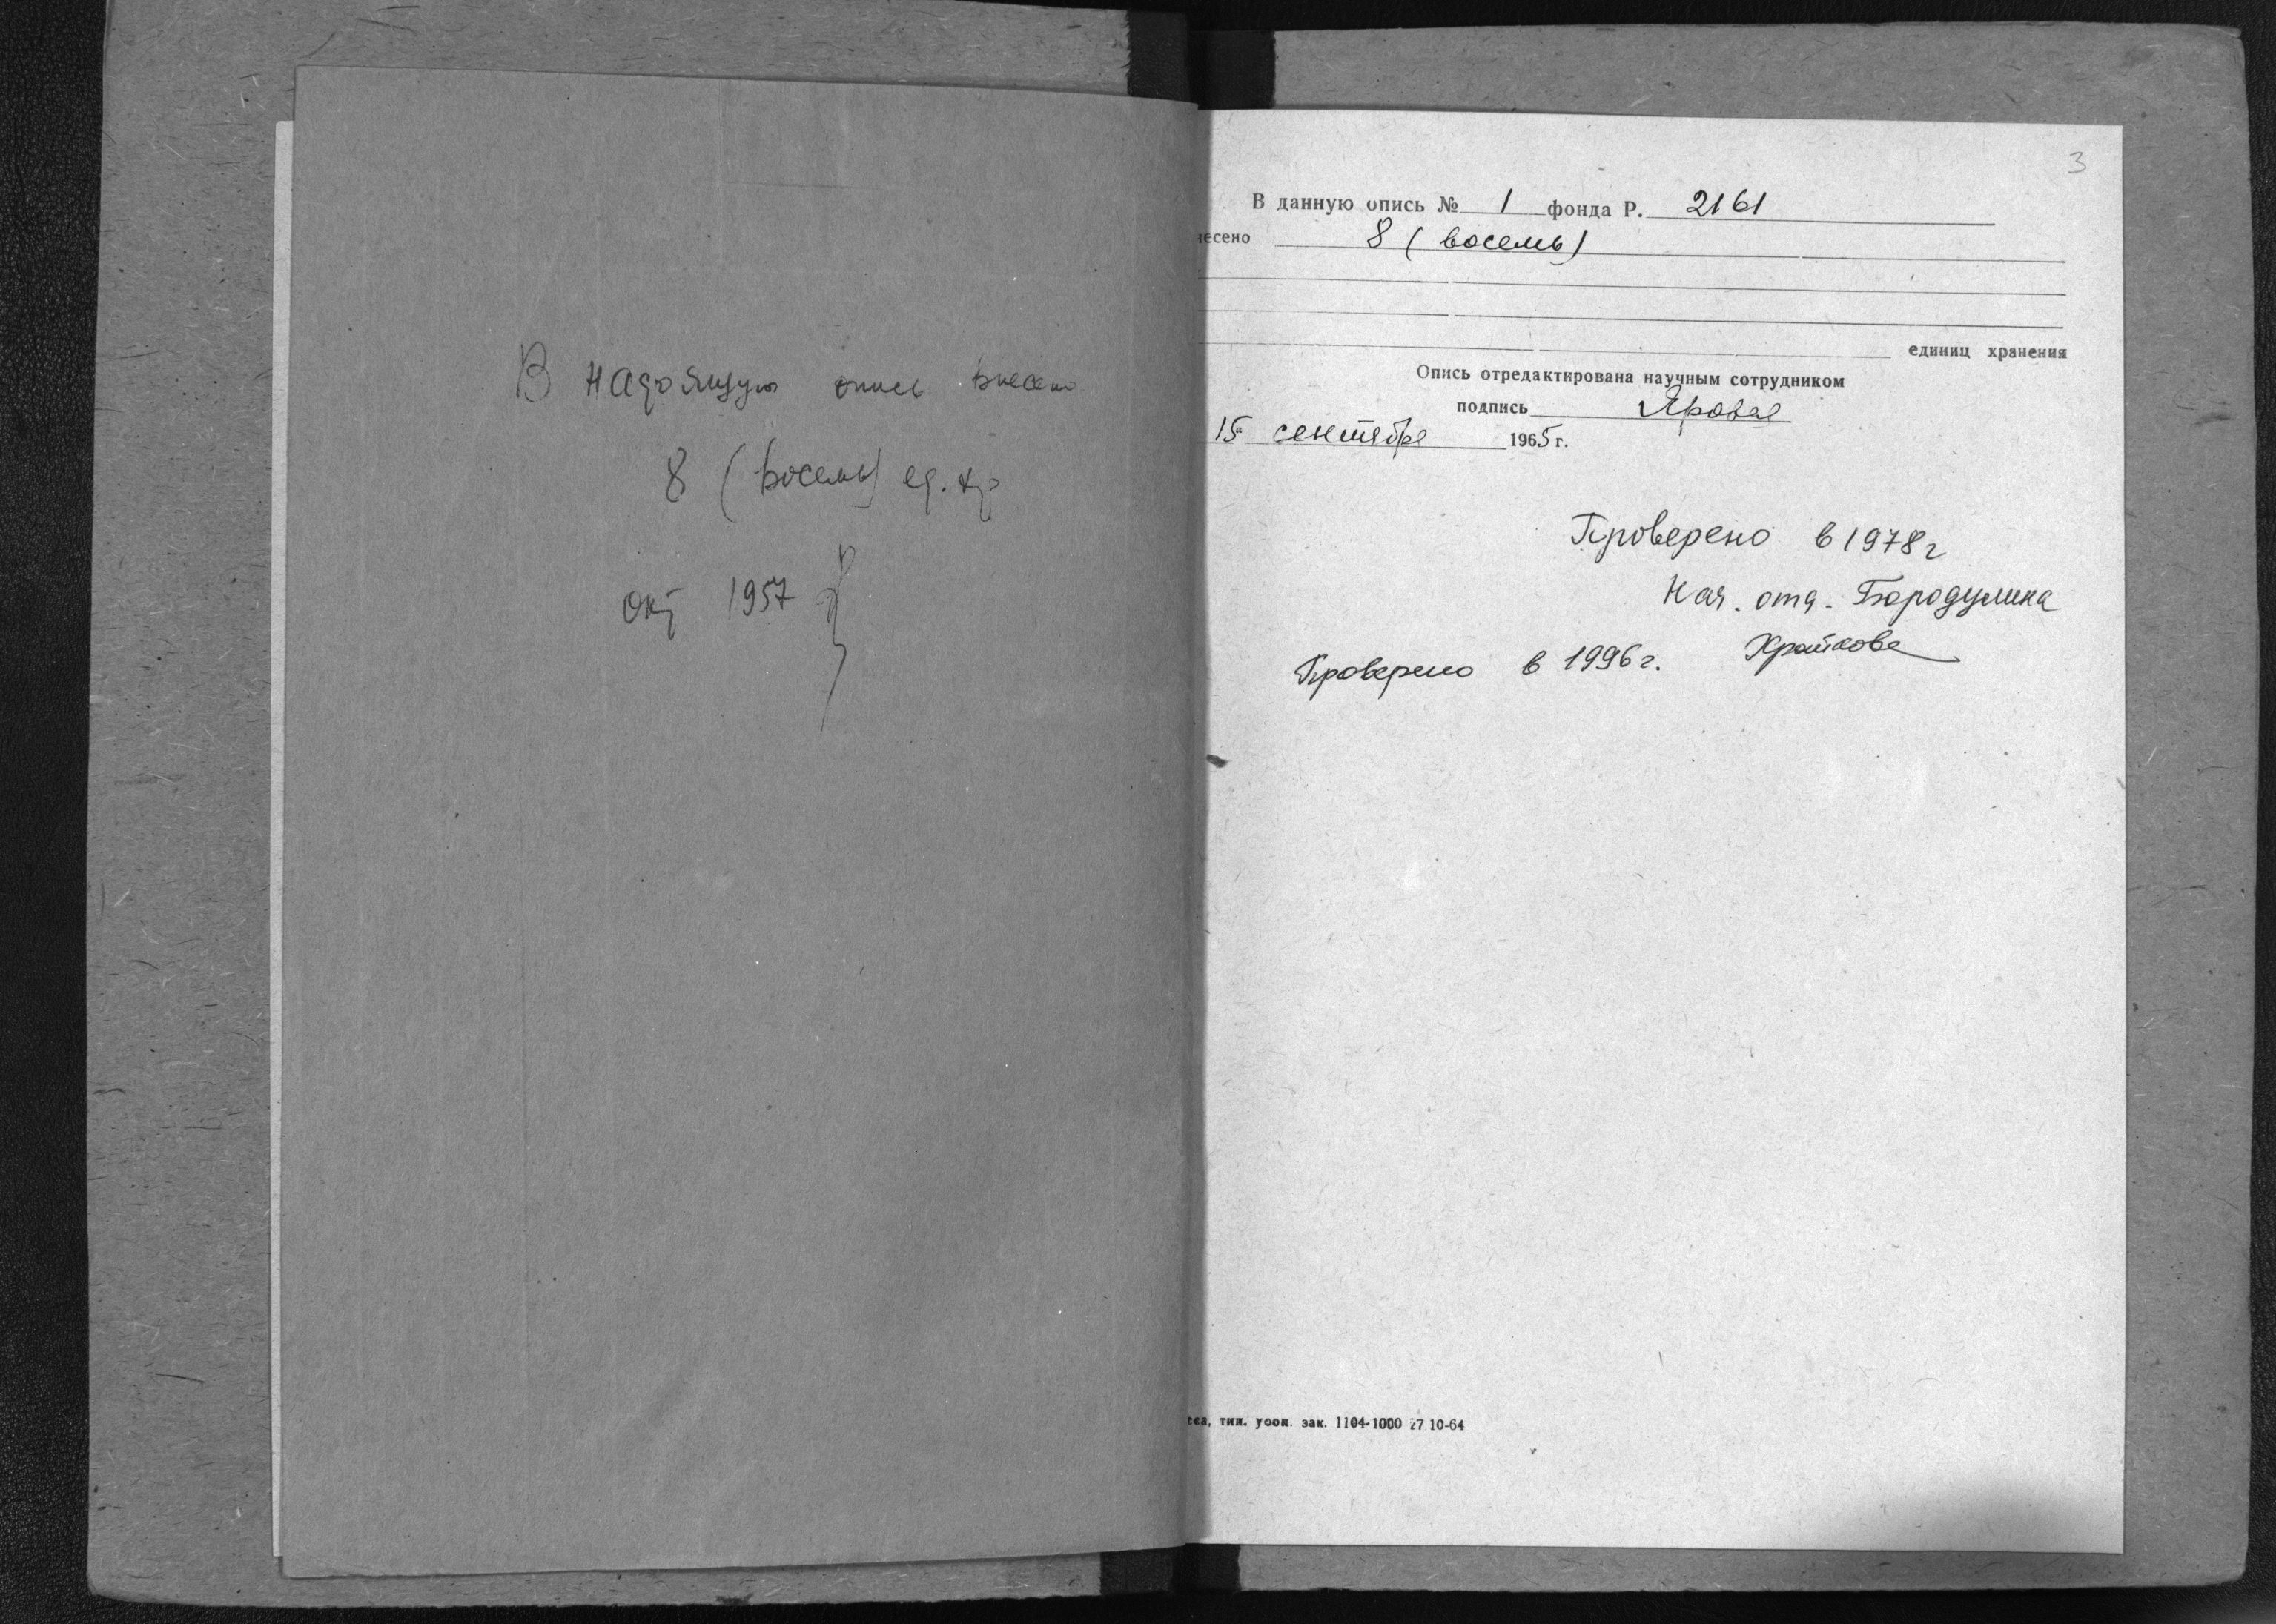 В настоящую опись внесено
8 (восемь) ед. хр
окт 1957
3
В данную опись № 1 фонда Р. 2161
несено 8 (восемь)
единиц хранения
Опись отредактирована научным сотрудником
подпись Яровая
15 сентября 1965 г.
Проверено в 1978 г
Нач. отд. Бородулина
Проверено в 1996 г.
тип. уоои. зак. 1104-1000 27 10-64